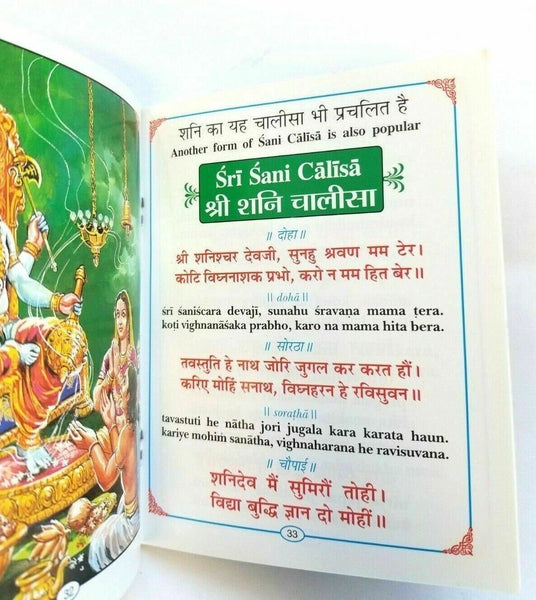 32
शनि का यह चालीसा भी प्रचलित है
Another form of Śani Cālīsā is also popular
Śrī Śani Cālīsā
श्री शनि चालीसा
॥ दोहा ॥
श्री शनिश्चर देवजी, सुनहु श्रवण मम टेर।
कोटि विघ्ननाशक प्रभो, करो न मम हित बेर॥
|| dohā ||
śrī śaniścara devajī, sunahu śravaṇa mama ṭera.
koṭi vighnanāśaka prabho, karo na mama hita bera.
॥ सोरठा ॥
तवस्तुति हे नाथ जोरि जुगल कर करत हौं।
करिए मोहिं सनाथ, विघ्नहरन हे रविसुवन॥
|| soraṭhā ||
tavastuti he nātha jori jugala kara karata haun.
kariye mohiṁ sanātha, vighnaharana he ravisuvana.
॥ चौपाई ॥
शनिदेव मैं सुमिरौं तोही।
विद्या बुद्धि ज्ञान दो मोहीं॥
33